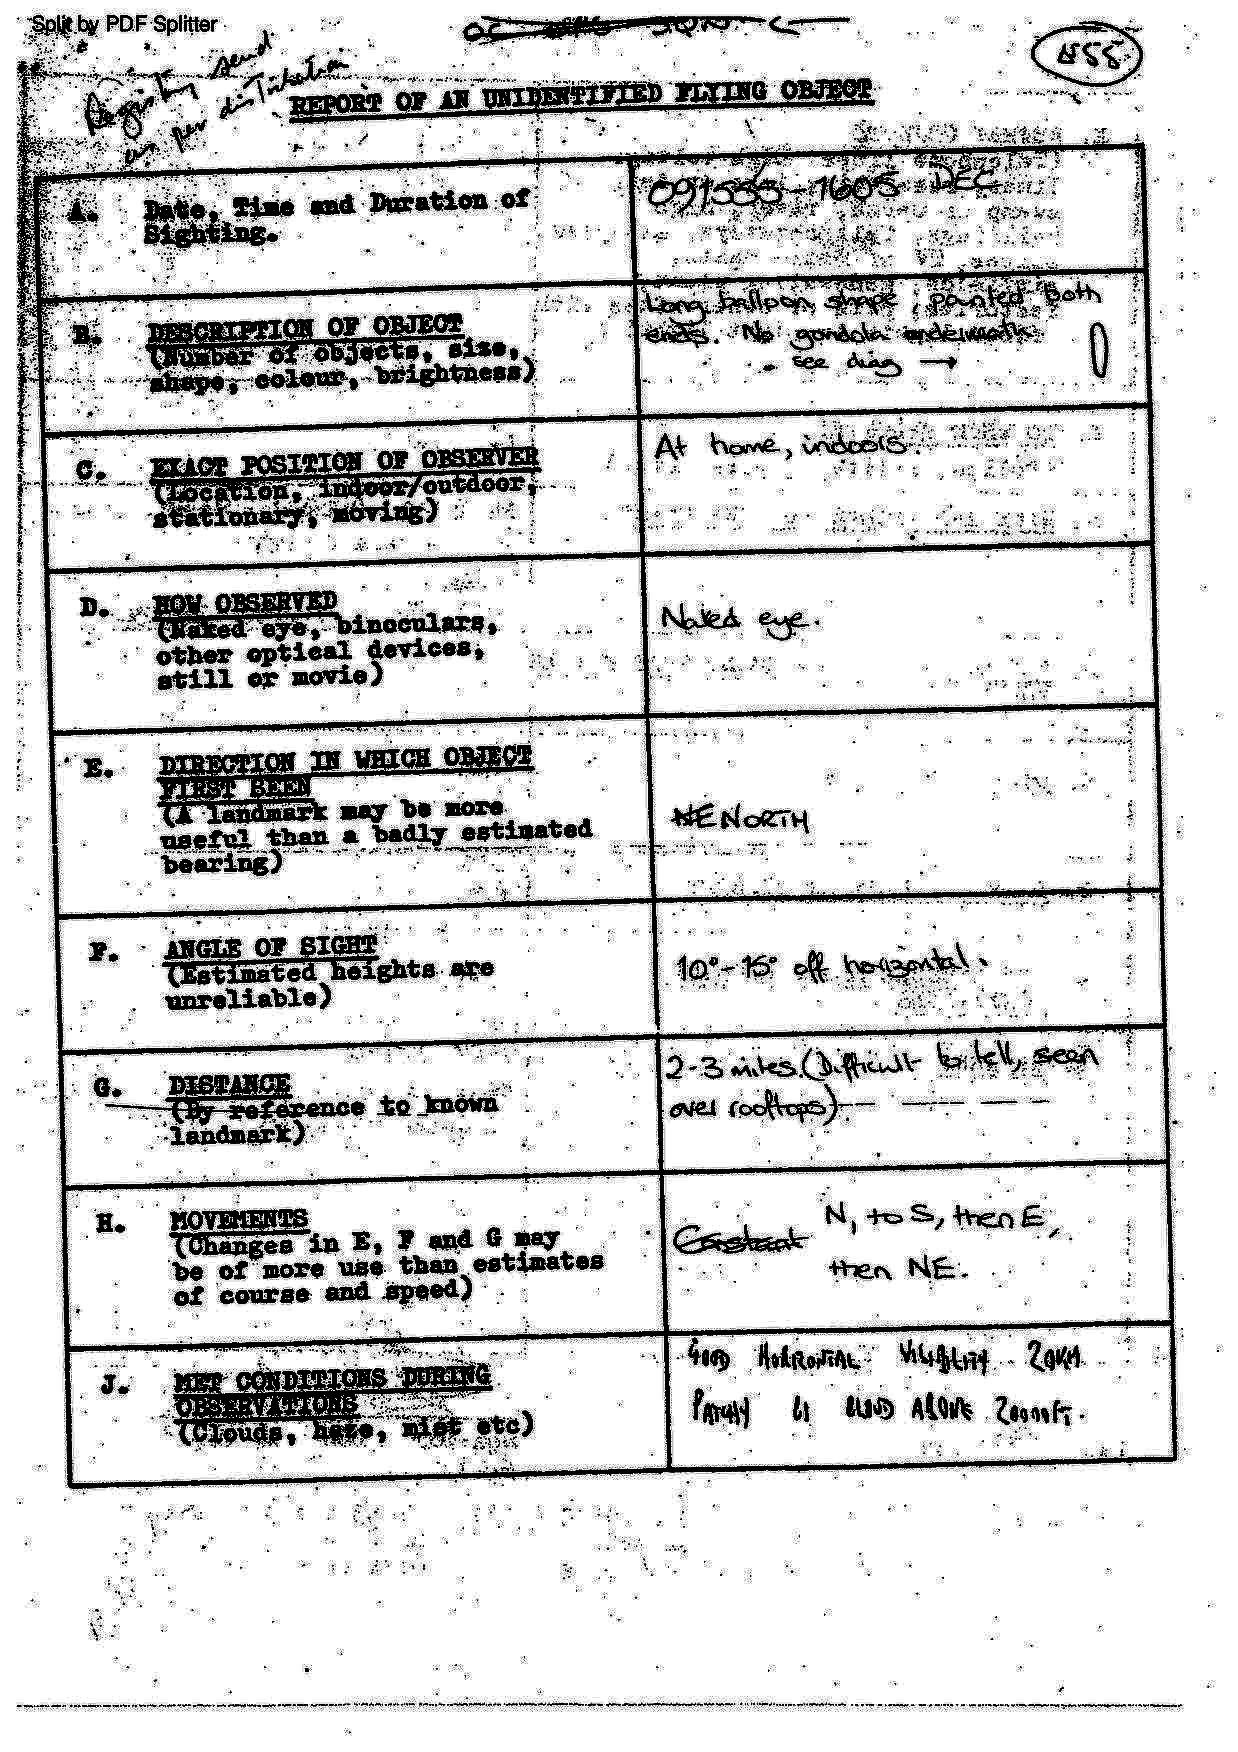 Split by PDF Splitter
Registry send
per distribution
REPORT OF AN UNIDENTIFIED FLYING OBJECT
A. Date, Time and Duration of
Sighting.
091555-1605 DEC
B. DESCRIPTION OF OBJECT
(Number of objects, size,
shape, colour, brightness)
Long balloon shape, pointed both
ends. No gondola underneath
see diag →
C. EXACT POSITION OF OBSERVER
(Location, indoor/outdoor,
stationary, moving)
At home, indoors.
D. HOW OBSERVED
(Naked eye, binoculars,
other optical devices,
still or movie)
Naked eye.
E. DIRECTION IN WHICH OBJECT
FIRST SEEN
(A landmark may be more
useful than a badly estimated
bearing)
NE NORTH
F. ANGLE OF SIGHT
(Estimated heights are
unreliable)
10°-15° off horizontal.
G. DISTANCE
(By reference to known
landmark)
2-3 miles. (Difficult to tell, seen
over rooftops)
H. MOVEMENTS
(Changes in E, F and G may
be of more use than estimates
of course and speed)
Constant N, to S, then E,
then NE.
J. MET CONDITIONS DURING
OBSERVATIONS
(Clouds, haze, mist etc)
GOOD HORIZONTAL VISIBILITY 20KM
PATCHY CI CLOUD ABOVE 20000FT.